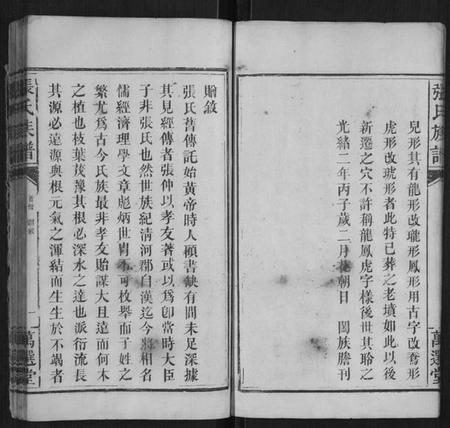 張氏族譜
萬選堂
兒形其有龍形改瓏形鳳形用古字改鵉形
虎形改琥形者此特已葬之老墳如此以後
新遷之穴不許稱龍鳳虎字樣後世其聆之
光緒二年丙子歲二月花朝日 閤族謄刊
贈敘
張氏舊傳託始黃帝時人顧書缺有間未足深據
其見經傳者張仲以孝友著或以為卽當時大臣
子非張氏也然世族紀淸河郡自漢迄今將相名
儒經濟理學文章彪炳世冑不可枚舉而于姓之
繁尤為古今氏族最非孝友貽謀大且遠而何木
之植也枝葉茂豫其根必深水之達也派衍流長
其源必遠源與根元氣之渾結而生生於不竭者
張氏族譜
萬選堂